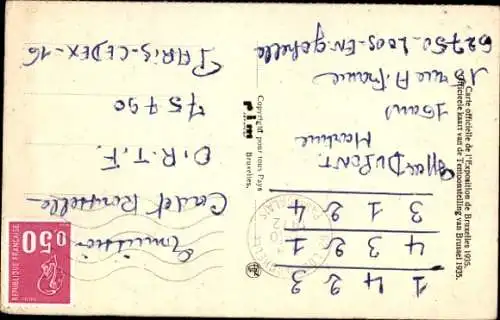 1 4 2 3
4 3 2 1
3 1 2 4
DUPONT
Martine
15 ans
10 rue A. France
62750-LOOS-EN-Gohelle
Emission
Cadet Rousselle
O.R.T.F.
75790
PARIS-CEDEX-16
Carte officielle de l'Exposition de Bruxelles 1935.
Officieele kaart van de Tentoonstelling van Brussel 1935.
Copyright pour tous Pays
rim
Bruxelles.
0,50
REPUBLIQUE FRANÇAISE